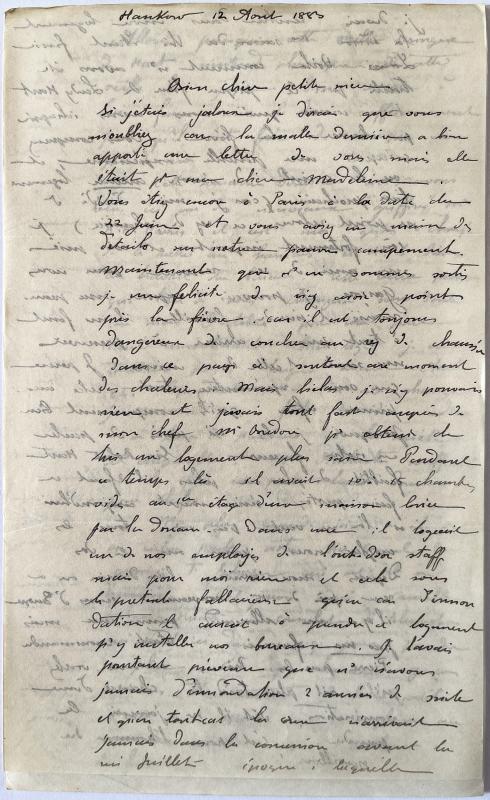 Hankow 12 Aout 1883
Bien chère petite mère
Si j'étais jaloux je dirais que vous
m'oubliez car la malle dernière a bien
apporté une lettre de vous mais elle
était pr ma chère Madeleine.
Vous étiez encore à Paris à la date du
22 Juin et vous aviez en main des
détails sur notre pauvre campement.
Maintenant que ns en sommes sortis
je me félicite de n'y avoir point
pris la fièvre. car il est toujours
dangereux de coucher au rez de chaussée
dans ce pays ci surtout au moment
des chaleurs. Mais hélas je n'y pouvais
rien et j'avais tout fait auprès de
mon chef Mr pr obtenir de
lui un logement plus sain. Pendant
ce temps là il avait 10 chambres
vides au 1er étage d'une maison louée
par la douane. Dans une il logeait
un de nos employés de l'out-door staff
mais pour moi rien et cela sous
le prétexte fallacieux qu'en cas d'innon
dation il aurait à prendre ce logement
pr y installer nos bureaux. Je l'avais
pourtant prévenu que ns n'avons
jamais d'innondation 2 années de suite
et qu'en tout cas les crues n'arrivaient
jamais dans la concession avant la
mi Juillet époque à laquelle